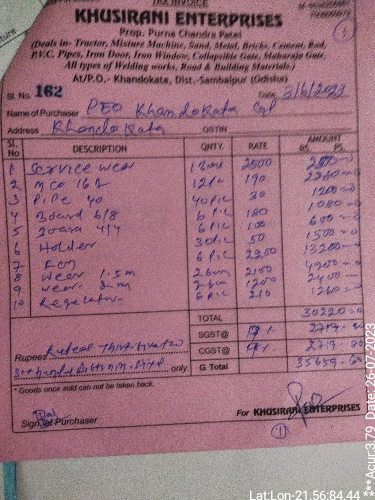 TAX INVOICE
KHUSIRANI ENTERPRISES
Prop. Purna Chandra Patel
(Deals in- Tractor, Mixture Machine, Sand, Metal, Bricks, Cement, Rod,
P.V.C. Pipes, Iron Door, Iron Window, Collapsible Gate, Maharaja Gate,
All types of Welding works, Road & Building Materials.)
At/P.O.- Khandokata, Dist.-Sambalpur (Odisha)
Sl. No. 162 Date 3/6/2023
Name of Purchaser PEO Khandokata GP
Address Khandokata GSTIN
Sl. No DESCRIPTION QNTY. RATE AMOUNT RS. PS.
1 Service wear 2500
2 MCO 16 A 12 pic 190 2280
3 Pipe 40 40 pic 30 1200
4 Board 6/8 6 pic 180 1080
5 Board 4/4 6 pic 100 600
6 Holder 30 pic 50 1500
7 Fan 6 pic 2200 13200
8 wear 1.5 m 2100 4200
9 wear 2 m 1200 2400
10 Regulator 6 pic 210 1260
TOTAL 30220
SGST@ 9% 2719
CGST@ 9% 2719
Rupees only G Total 35659
* Goods once sold can not be taken back.
Sign of Purchaser For KHUSIRANI ENTERPRISES
1
Lat:Lon-21.56:84.44
***Acur:3.79 Date:26-07-2023